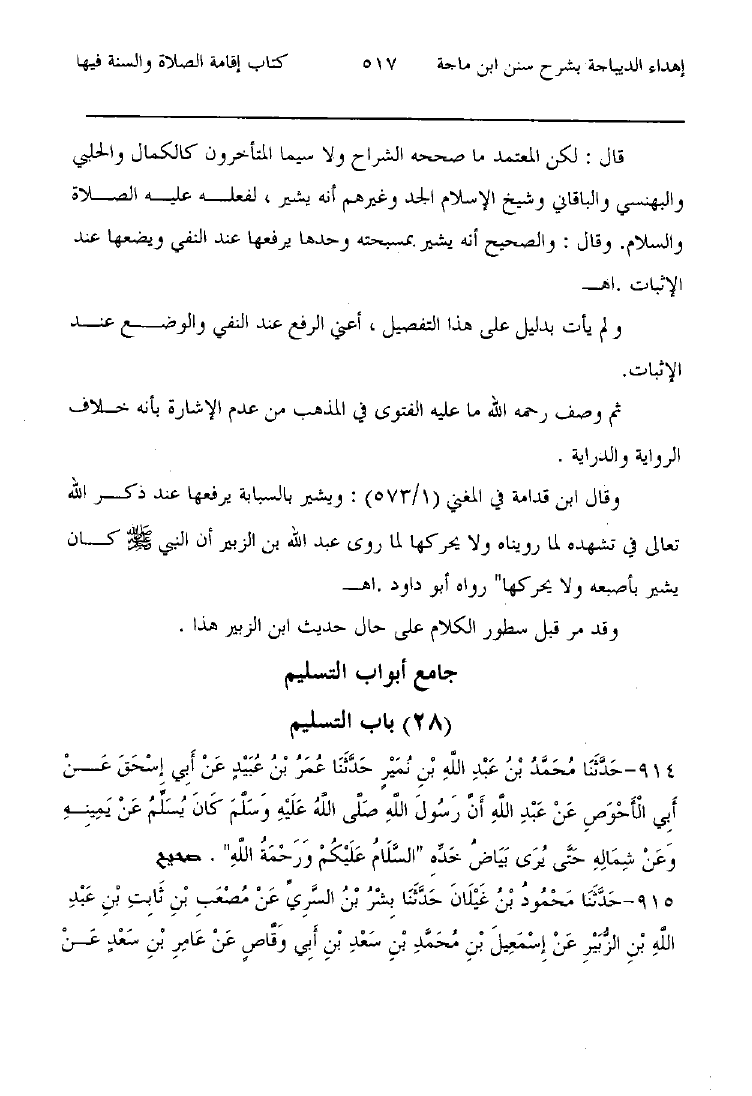 إهداء الديباجة بشرح سنن ابن ماجة ٥١٧ كتاب إقامة الصلاة والسنة فيها
قال : لكن المعتمد ما صححه الشراح ولا سيما المتأخرون كالكمال والحلبي
والبهنسي والباقاني وشيخ الإسلام الجد وغيرهم أنه يشير ، لفعلـــه عليـــه الصـــلاة
والسلام. وقال : والصحيح أنه يشير بمسبحته وحدها يرفعها عند النفي ويضعها عند
الإثبات .اهـــ
و لم يأت بدليل على هذا التفصيل ، أعني الرفع عند النفي والوضـــع عنـــد
الإثبات.
ثم وصف رحمه الله ما عليه الفتوى في المذهب من عدم الإشارة بأنه خـــلاف
الرواية والدراية .
وقال ابن قدامة في المغني (٥٧٣/١) : ويشير بالسبابة يرفعها عند ذكـــر الله
تعالى في تشهده لما رويناه ولا يحركها لما روى عبد الله بن الزبير أن النبي ﷺ كـــان
يشير بأصبعه ولا يحركها" رواه أبو داود .اهـــ
وقد مر قبل سطور الكلام على حال حديث ابن الزبير هذا .
جامع أبواب التسليم
(٢٨) باب التسليم
٩١٤-حَدَّثَنَا مُحَمَّدُ بْنُ عَبْدِ اللَّهِ بْنِ نُمَيْرٍ حَدَّثَنَا عُمَرُ بْنُ عُبَيْدٍ عَنْ أَبِي إِسْحَقَ عَـــنْ
أَبِي الْأَحْوَصِ عَنْ عَبْدِ اللَّهِ أَنَّ رَسُولَ اللَّهِ صَلَّى اللَّهُ عَلَيْهِ وَسَلَّمَ كَانَ يُسَلِّمُ عَنْ يَمِينِـــهِ
وَعَنْ شِمَالِهِ حَتَّى يُرَى بَيَاضُ خَدِّهِ "السَّلَامُ عَلَيْكُمْ وَرَحْمَةُ اللَّهِ" . صحيح
٩١٥-حَدَّثَنَا مَحْمُودُ بْنُ غَيْلَانَ حَدَّثَنَا بِشْرُ بْنُ السَّرِيِّ عَنْ مُصْعَبِ بْنِ ثَابِتِ بْنِ عَبْدِ
اللَّهِ بْنِ الزُّبَيْرِ عَنْ إِسْمَعِيلَ بْنِ مُحَمَّدِ بْنِ سَعْدِ بْنِ أَبِي وَقَّاصٍ عَنْ عَامِرِ بْنِ سَعْدٍ عَـــنْ